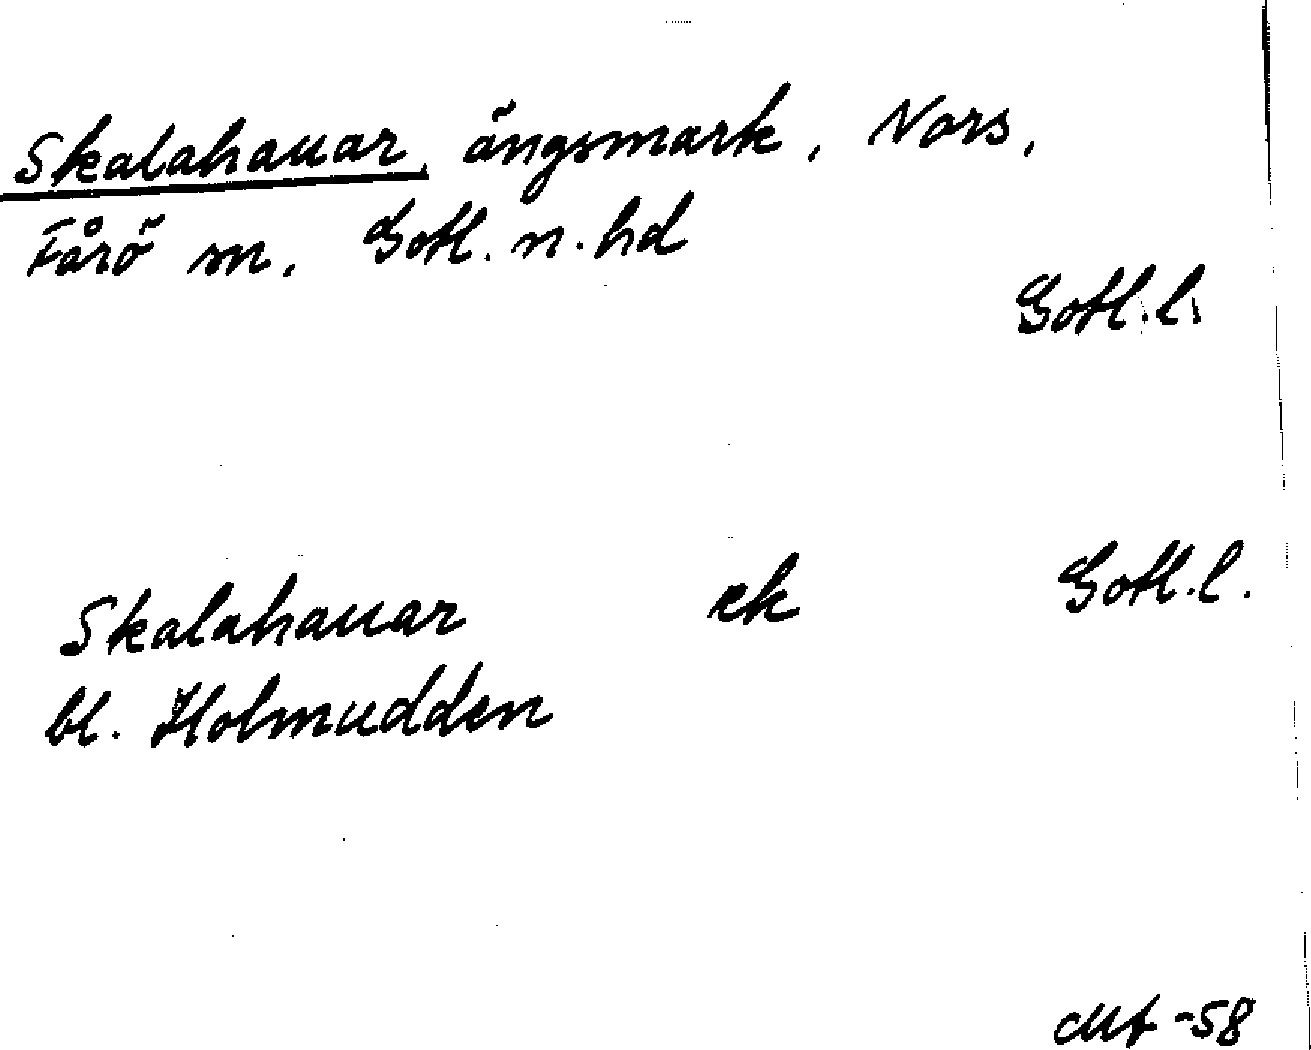 Skalahauar, ängsmark, Nors,
Fårö sn, Gotl. n. hd
Gotl. l.
Skalahauar ek Gotl. l.
bl. Holmudden
-58